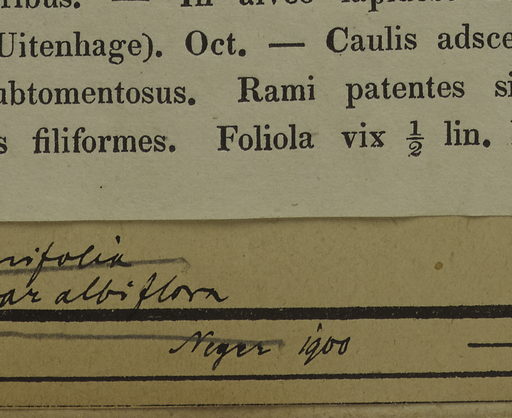 ribus. — In alveo lapidos
Uitenhage). Oct. — Caulis adsce
ubtomentosus. Rami patentes si
s filiformes. Foliola vix ½ lin.
nifolia
ar albiflora
1900